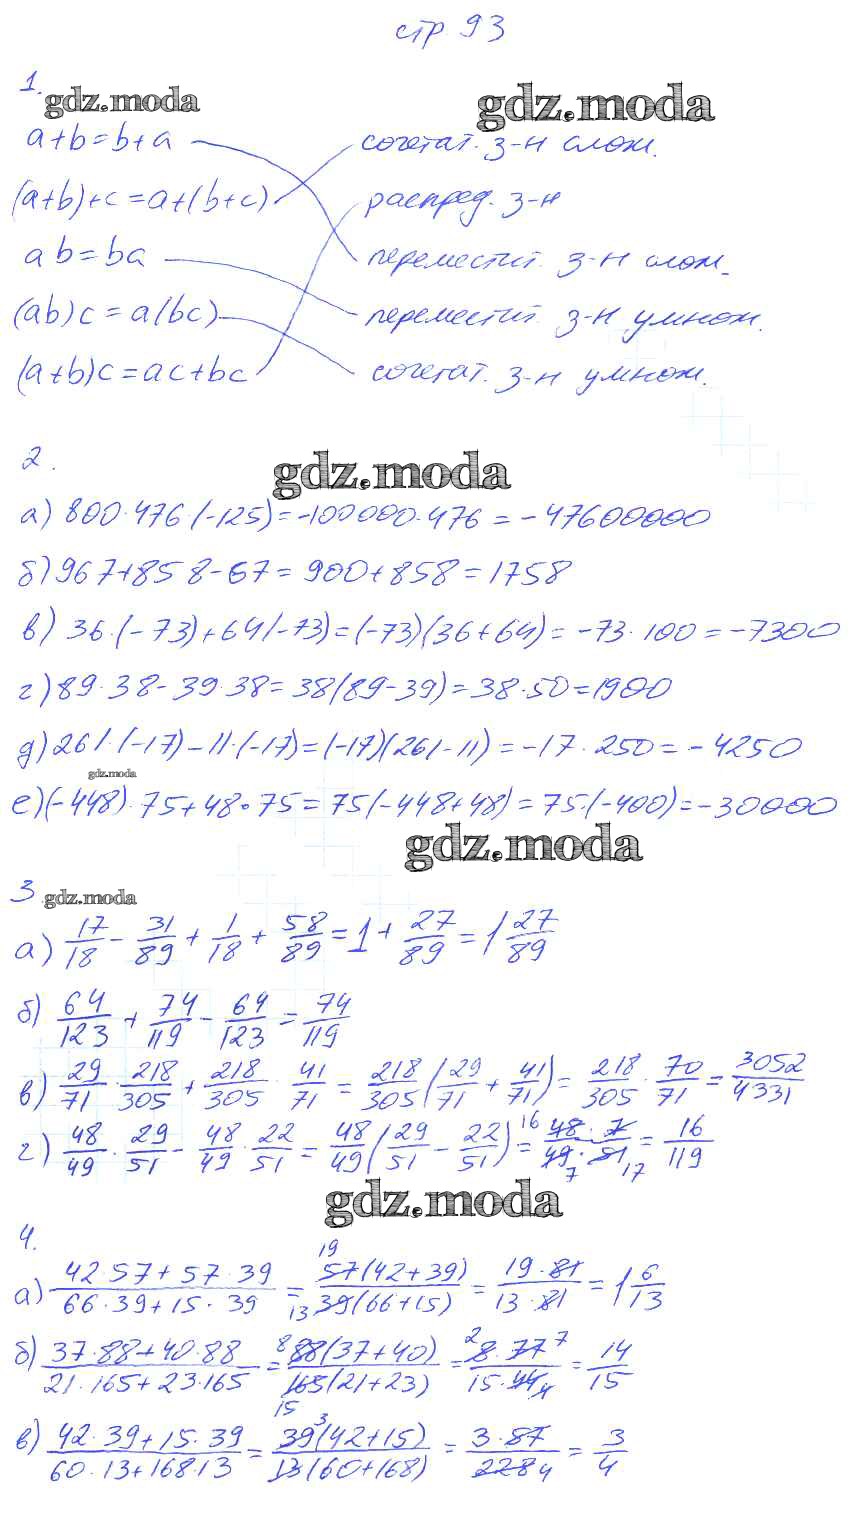 стр 93
1.
gdz.moda gdz.moda
a+b=b+a сочетат. з-н слож.
(a+b)+c=a+(b+c) распред. з-н
ab=ba переместит. з-н слож.
(ab)c=a(bc) переместит. з-н умнож.
(a+b)c=ac+bc сочетат. з-н умнож.
2.
gdz.moda
а) 800·476·(-125)=-100000·476=-47600000
б) 967+858-67=900+858=1758
в) 36·(-73)+64(-73)=(-73)(36+64)=-73·100=-7300
г) 89·38-39·38=38(89-39)=38·50=1900
д) 261·(-17)-11·(-17)=(-17)(261-11)=-17·250=-4250
gdz.moda
е) (-448)·75+48·75=75(-448+48)=75·(-400)=-30000
gdz.moda
3 gdz.moda
а) 17/18 - 31/89 + 1/18 + 58/89 = 1 + 27/89 = 1 27/89
б) 64/123 + 74/119 - 64/123 = 74/119
в) 29/71 · 218/305 + 218/305 · 41/71 = 218/305 (29/71 + 41/71) = 218/305 · 70/71 = 3052/4331
г) 48/49 · 29/51 - 48/49 · 22/51 = 48/49 (29/51 - 22/51) = 16 48·7/49·51 7 17 = 16/119
gdz.moda
4.
а) 42·57+57·39/66·39+15·39 = 19 57(42+39)/13 39(66+15) = 19·81/13·81 = 1 6/13
б) 37·88+40·88/21·165+23·165 = 8 88(37+40)/165(21+23) 15 = 2 8·77 7/15·44 4 = 14/15
в) 42·39+15·39/60·13+168·13 = 39 3(42+15)/13(60+168) = 3·57/228 4 = 3/4